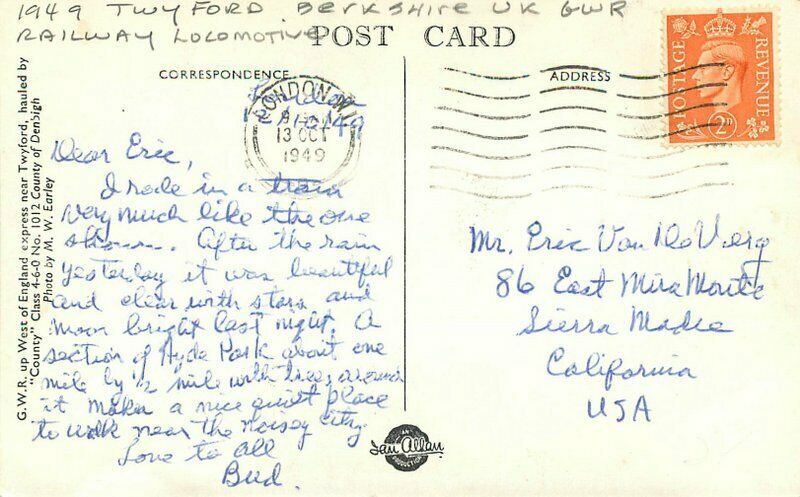 1949 TWYFORD BERKSHIRE UK GWR
RAILWAY LOCOMOTIVE
POST CARD
CORRESPONDENCE
ADDRESS
LONDON W.1
13 OCT
1949
POSTAGE REVENUE
2D
London
12/10/49
Dear Eric,
I rode in a train
very much like the one
After the rain
yesterday it was beautiful
and clear with stars and
moon bright last night. A
section of Hyde Park about one
mile by 1/2 mile with trees around
it makes a nice quiet place
to walk near the noisey city.
Love to all
Bud.
Mr. Eric Van De Verg
86 East Mira Monte
Sierra Madre
California
USA
G.W.R. up West of England express near Twyford, hauled by
"County" Class 4-6-0 No. 1012 County of Denbigh
Photo by M. W. Earley
AN
Ian Allan
PRODUCTION